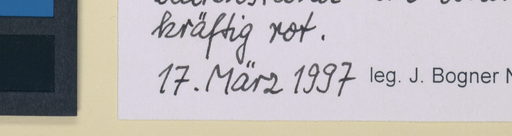 kräftig rot.
17. März 1997 leg. J. Bogner